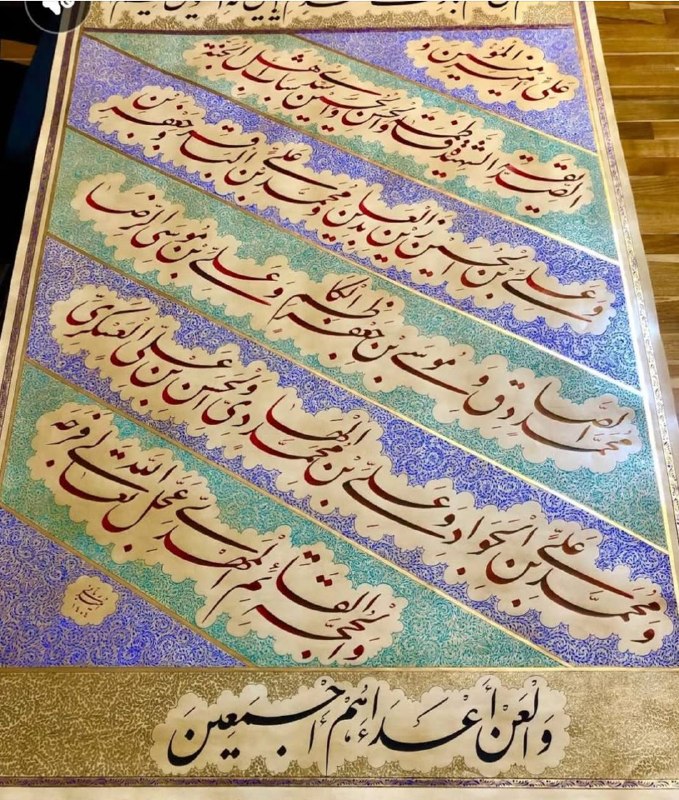 علی امیر المؤمنین و
الصدیقة الشهیدة فاطمة والحسن والحسین سیدی شباب اهل الجنة
و علی بن الحسین زین العابدین و محمد بن علی الباقر و جعفر بن
محمد الصادق و موسی بن جعفر الکاظم و علی بن موسی الرضا
و محمد بن علی الجواد و علی بن محمد الهادی والحسن بن علی العسکری
والحجة القائم المهدی عجل الله تعالی فرجه
وَالْعَنْ أَعْدَاءهُمْ اَجْمَعِین